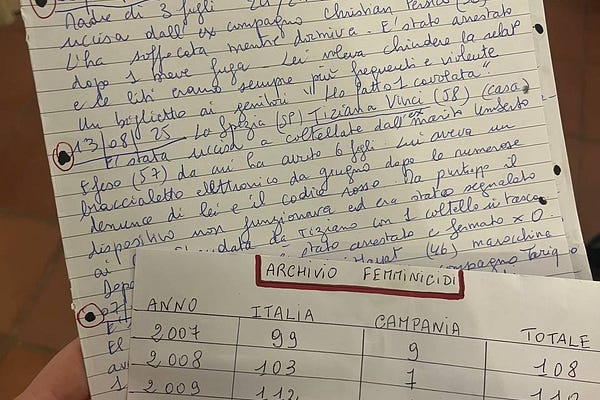 Madre di 3 figli
uccisa dall'ex compagno Christian Persia
L'ha soffocata mentre dormiva. E' stato arrestato
dopo 1 breve fuga. Lei voleva chiudere la relaz
e le liti erano sempre più frequenti e violente
Un biglietto ai genitori "Ho fatto 1 cavolata".
13/08/25 La Spezia (SP) Tiziana Vinci (58) (casa)
E' stata uccisa a coltellate dall'ex marito Umberto
Efeso (57) da cui ha avuto 6 figli. Lui aveva un
braccialetto elettronico da giugno dopo le numerose
denunce di lei e il codice rosso. Ma purtropp il
dispositivo non funzionava ed era stato segnalato
ai da Tiziana con 1 coltello in tasca
Dopo è stato arrestato e fermato x O.
(46) marocchina
compagno Tariq
ARCHIVIO FEMMINICIDI
ANNO ITALIA CAMPANIA TOTALE
2007 99 9 108
2008 103 7 110
2009 112